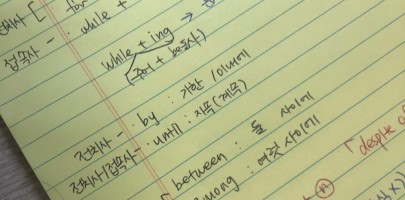 전치사 [ for
접속사 - · while +
while + ing →
(주어 + be동사)
전치사 - · by : 기한 이내에
전치사/접속사 - · until : 지속(계속)
[ between : 둘 사이에
among : 여럿 사이에
「despite